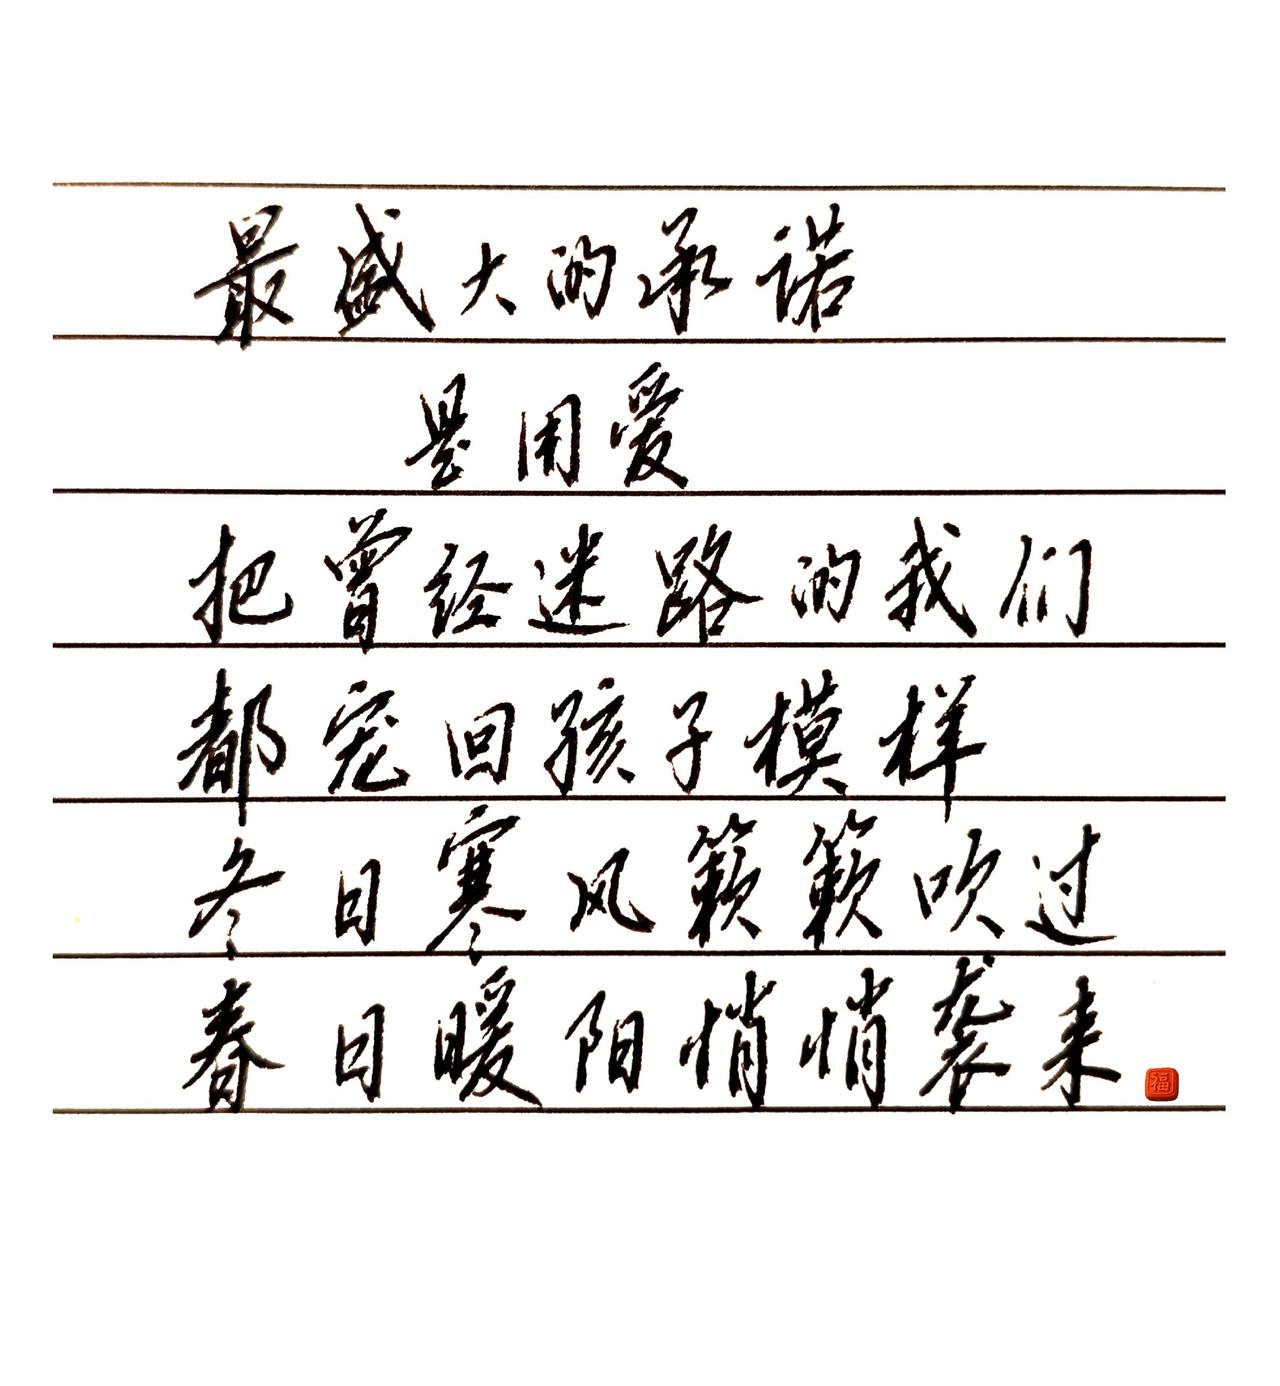 最盛大的承诺
是用爱
把曾经迷路的我们
都宠回孩子模样
冬日寒风簌簌吹过
春日暖阳悄悄袭来
福